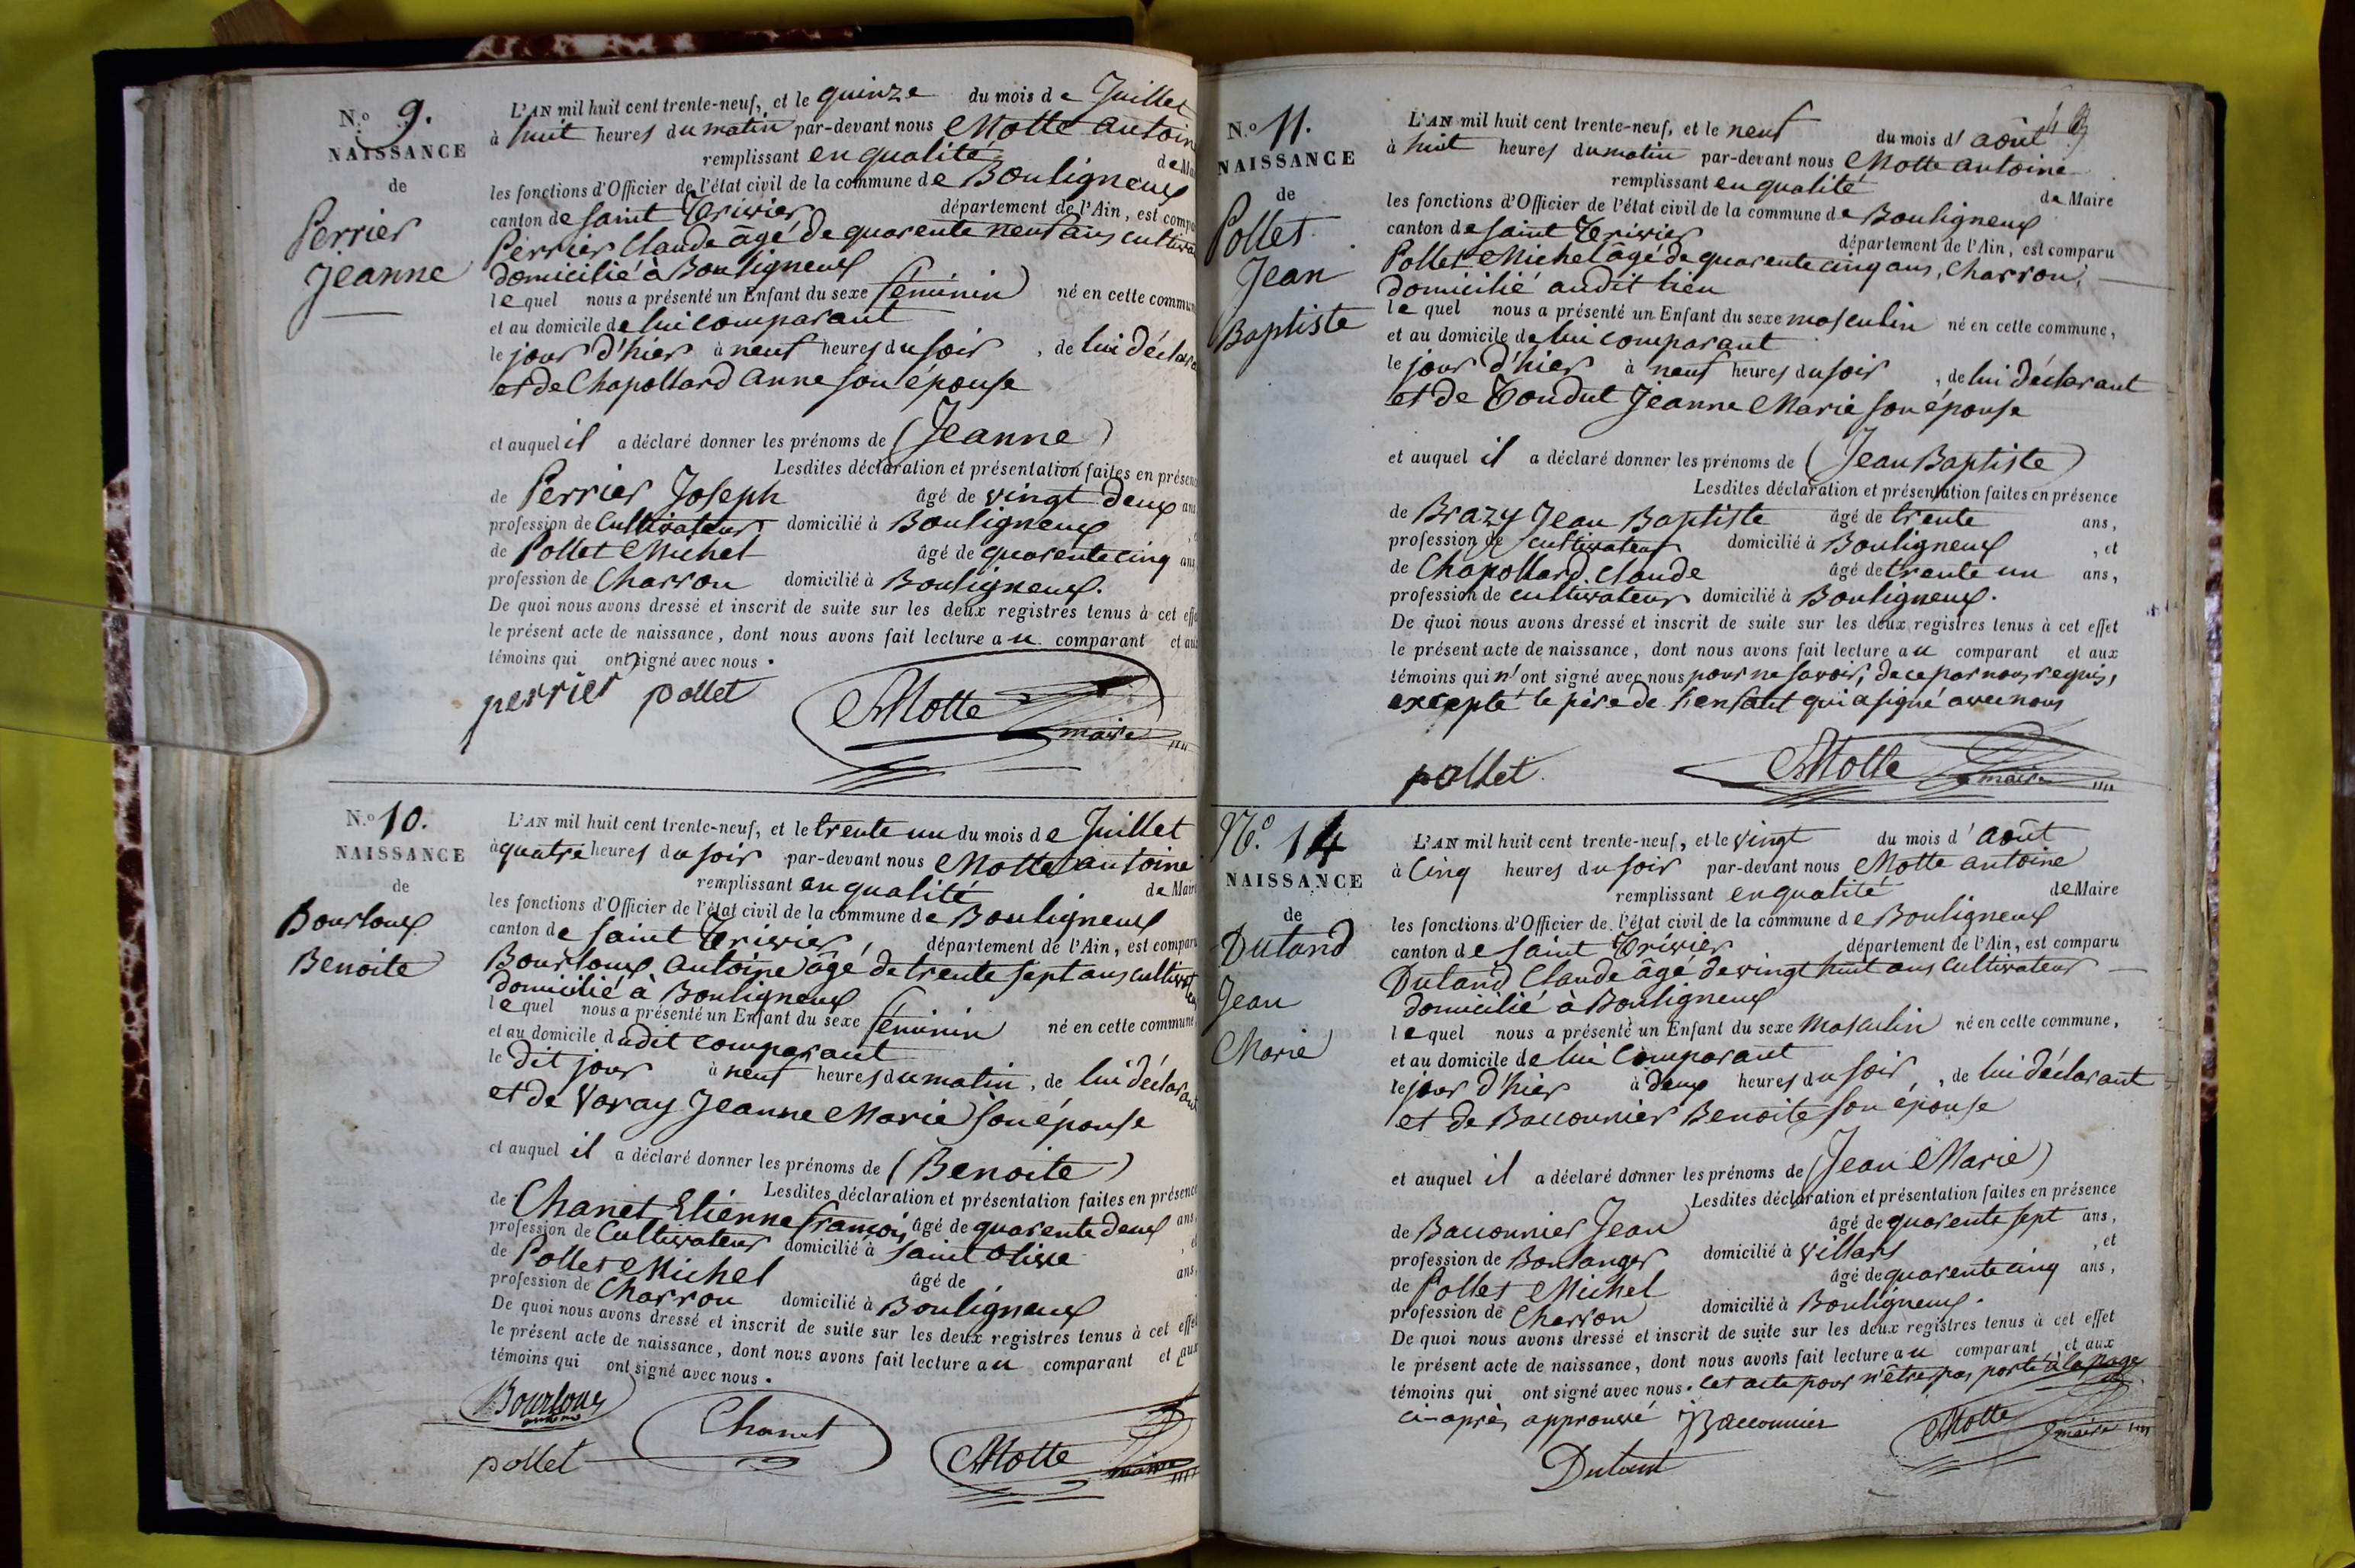 N.o 9.
NAISSANCE
de
Perrier
Jeanne
L'AN mil huit cent trente-neuf, et le quinze du mois de Juillet
à huit heures du matin par-devant nous Motte antoine
remplissant en qualité de Mai
les fonctions d'Officier de l'état civil de la commune de Bouligneux
canton de saint Trivier département de l'Ain, est compa
Perrier Claude âgé de quarente neuf ans cultiva
domicilié à Bouligneux
lequel nous a présenté un Enfant du sexe féminin né en cette commun
et au domicile de lui comparant
le jour d'hier à neuf heures du soir, de lui déclara
et de Chapollard anne son épouse
et auquel il a déclaré donner les prénoms de (Jeanne)
Lesdites déclaration et présentation faites en présence
de Perrier Joseph âgé de vingt deux ans
profession de Cultivateur domicilié à Bouligneux
de Pollet Michel âgé de quarente cinq ans
profession de Charron domicilié à Bouligneux.
De quoi nous avons dressé et inscrit de suite sur les deux registres tenus à cet effe
le présent acte de naissance, dont nous avons fait lecture au comparant et aux
témoins qui ont signé avec nous.
perrier pollet Motte
maire
N.o 10.
NAISSANCE
de
Bourloux
Benoite
L'AN mil huit cent trente-neuf, et le trente un du mois de Juillet
à quatre heures du soir par-devant nous Motte antoine
remplissant en qualité de Maire
les fonctions d'Officier de l'état civil de la commune de Bouligneux
canton de saint Trivier, département de l'Ain, est comparu
Bourloux antoine âgé de trente sept ans cultivateu
domicilié à Bouligneux
lequel nous a présenté un Enfant du sexe féminin né en cette commune
et au domicile dudit comparant
le dit jour à neuf heures du matin, de lui déclarant
et de Varay Jeanne Marie son épouse
et auquel il a déclaré donner les prénoms de (Benoite)
Lesdites déclaration et présentation faites en présence
de Chanet Etienne françois âgé de quarente deux ans,
profession de Cultivateur domicilié à saint olive, et
de Pollet Michel âgé de ans,
profession de Charron domicilié à Bouligneux
De quoi nous avons dressé et inscrit de suite sur les deux registres tenus à cet effet
le présent acte de naissance, dont nous avons fait lecture au comparant et aux
témoins qui ont signé avec nous.
Bourloux Chanet
pollet Motte maire
N.o 11.
NAISSANCE
de
Pollet
Jean
Baptiste
L'AN mil huit cent trente-neuf, et le neuf du mois d'août
à huit heures du matin par-devant nous Motte antoine
remplissant en qualité de Maire
les fonctions d'Officier de l'état civil de la commune de Bouligneux
canton de saint Trivier département de l'Ain, est comparu
Pollet Michel âgé de quarente cinq ans, Charron,
domicilié audit lieu
lequel nous a présenté un Enfant du sexe masculin né en cette commune,
et au domicile de lui comparant
le jour d'hier à neuf heures du soir, de lui déclarant
et de Tondut Jeanne Marie son épouse
et auquel il a déclaré donner les prénoms de (Jean Baptiste)
Lesdites déclaration et présentation faites en présence
de Brazy Jean Baptiste âgé de trente ans,
profession de cultivateur domicilié à Bouligneux, et
de Chapollard Claude âgé de trente un ans,
profession de cultivateur domicilié à Bouligneux.
De quoi nous avons dressé et inscrit de suite sur les deux registres tenus à cet effet
le présent acte de naissance, dont nous avons fait lecture au comparant et aux
témoins qui n'ont signé avec nous pour ne savoir, de ce par nous requis,
excepté le père de l'enfant qui a signé avec nous
pollet Motte maire
N.o 14
NAISSANCE
de
Dutand
Jean
Marie
L'AN mil huit cent trente-neuf, et le vingt du mois d'août
à Cinq heures du soir par-devant nous Motte antoine
remplissant en qualité de Maire
les fonctions d'Officier de l'état civil de la commune de Bouligneux
canton de saint Trivier département de l'Ain, est comparu
Dutand Claude âgé de vingt huit ans Cultivateur
domicilié à Bouligneux
lequel nous a présenté un Enfant du sexe Masculin né en cette commune,
et au domicile de lui Comparant
le jour d'hier à deux heures du soir, de lui déclarant
et de Bacconnier Benoite son épouse
et auquel il a déclaré donner les prénoms de (Jean Marie)
Lesdites déclaration et présentation faites en présence
de Bacconnier Jean âgé de quarente sept ans,
profession de Boulanger domicilié à Villars, et
de Pollet Michel âgé de quarente cinq ans,
profession de Charron domicilié à Bouligneux.
De quoi nous avons dressé et inscrit de suite sur les deux registres tenus à cet effet
le présent acte de naissance, dont nous avons fait lecture au comparant et aux
témoins qui ont signé avec nous. Cet acte pour n'être pas porté à la page
ci-après, approuvé Bacconnier Motte maire
Dutand